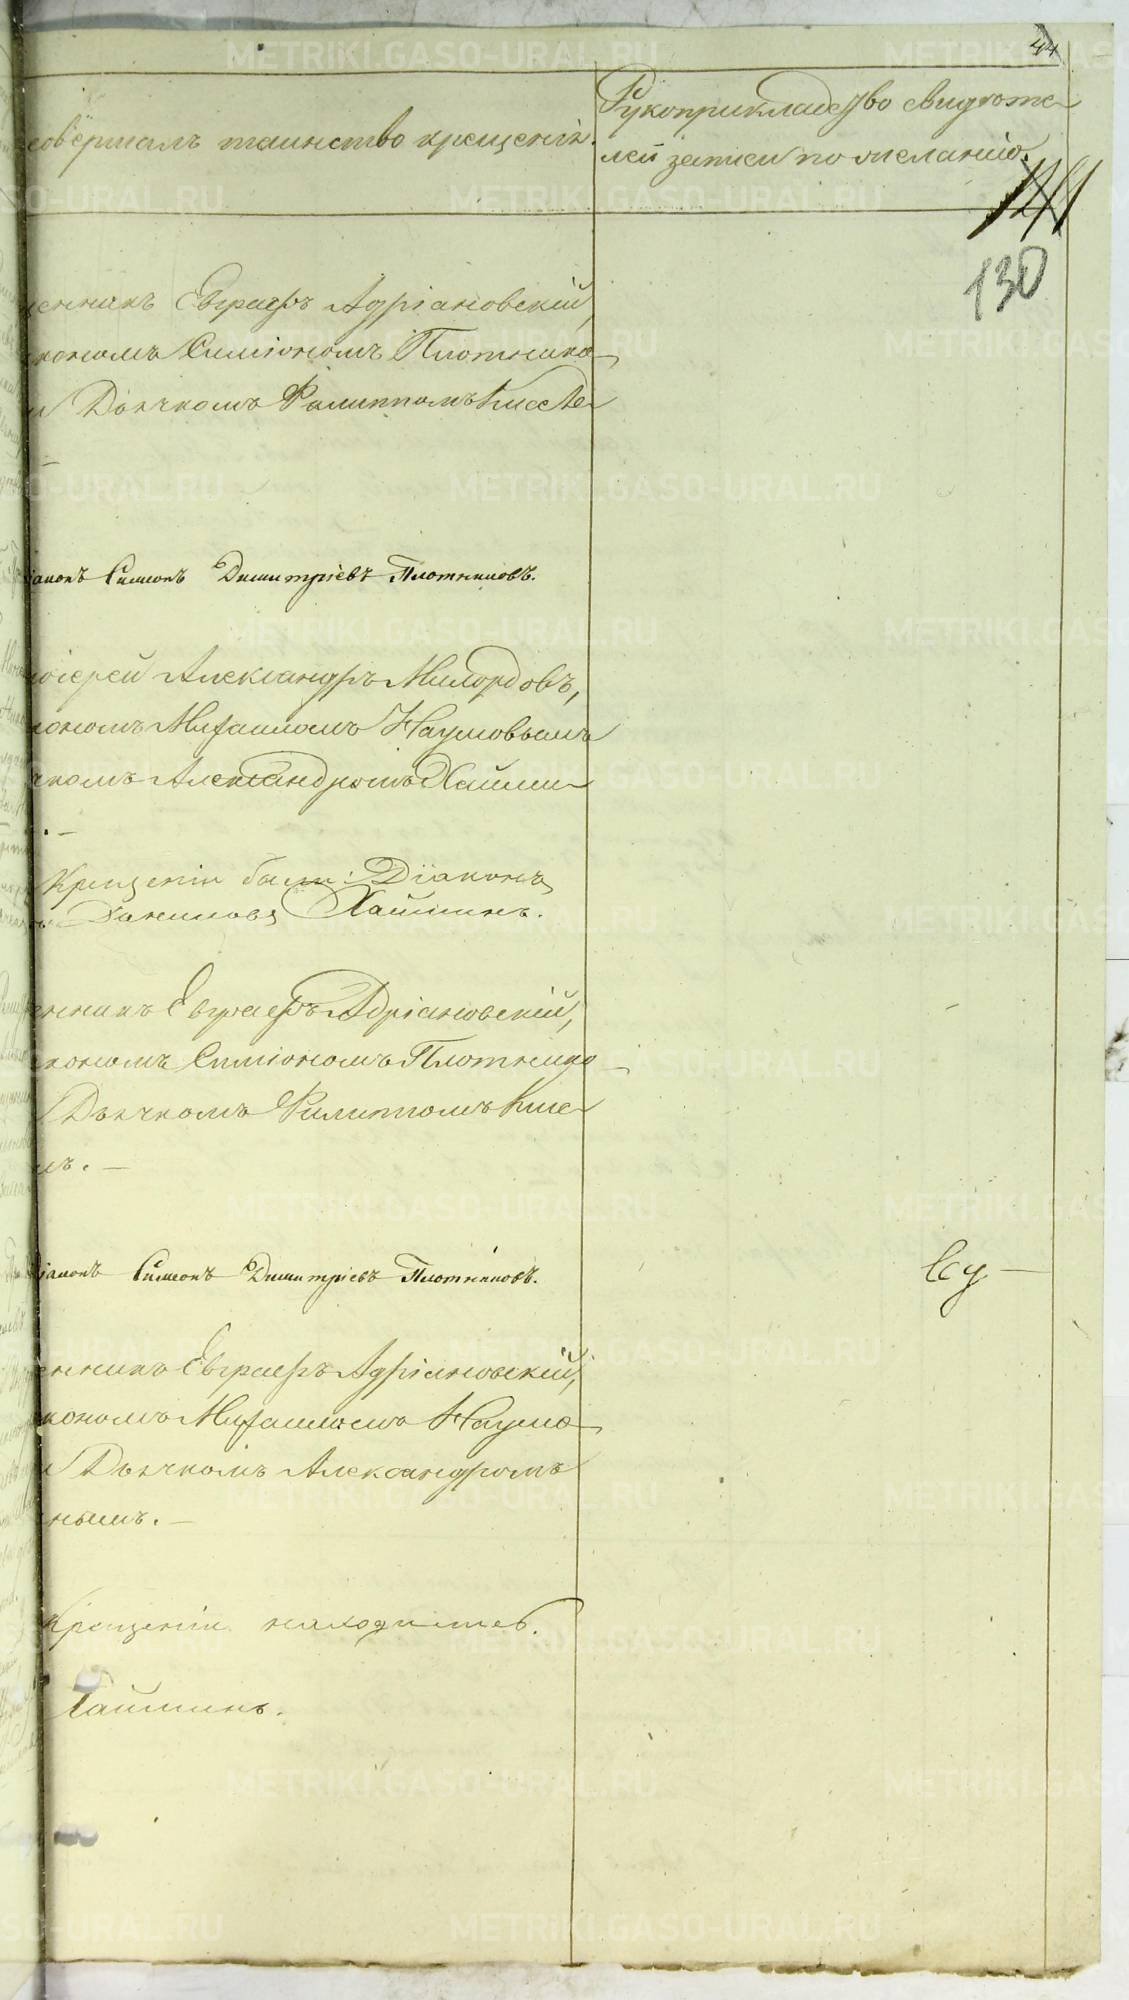 44
совершалъ таинство крещенія.
Рукоприкладство свидѣте
лей записи по желанію.
141
130
щенникъ Евграфъ Адріановскій,
кономъ Симіономъ Плотнико
и Дьячкомъ Филиппомъ Кисе
іаконъ Симеонъ Димитріевъ Плотниковъ.
оіерей Александръ Милордовъ,
кономъ Михаиломъ Наумовымъ
комъ Александромъ Хайми
Крещеніи были: Діаконъ
Наумовъ Хайминъ.
енникъ Евграфъ Адріановскій,
кономъ Симіономъ Плотнико
Дьячкомъ Филиппомъ Кисе
мъ.
іаконъ Симеонъ Димитріевъ Плотниковъ.
енникъ Евграфъ Адріановскій,
кономъ Михаиломъ Наумо
и Дьячкомъ Александромъ
нымъ.
Крещеніи находились.
Хайминъ.
METRIKI.GASO-URAL.RU